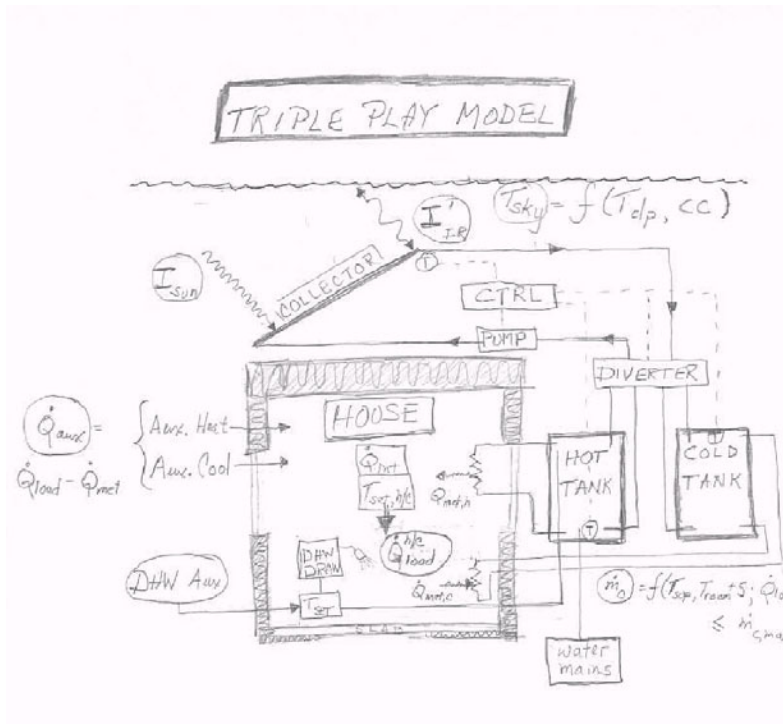 TRIPLE PLAY MODEL
T_sky = f(T_dp, CC)
I'_I-R
I_sun
COLLECTOR
T
CTRL
PUMP
DIVERTER
Q̇_aux =
Q̇_load - Q̇_met
Aux. Heat
Aux. Cool
HOUSE
Q̇_int
T_set, h/c
Q̇_load h/c
Q̇_met,h
HOT
TANK
T
COLD
TANK
T
DHW
DRAW
DHW Aux
T_SET
Q̇_met,c
SLAB
ṁ_c = f(T_sup, T_room
≤ ṁ_c,
water
mains